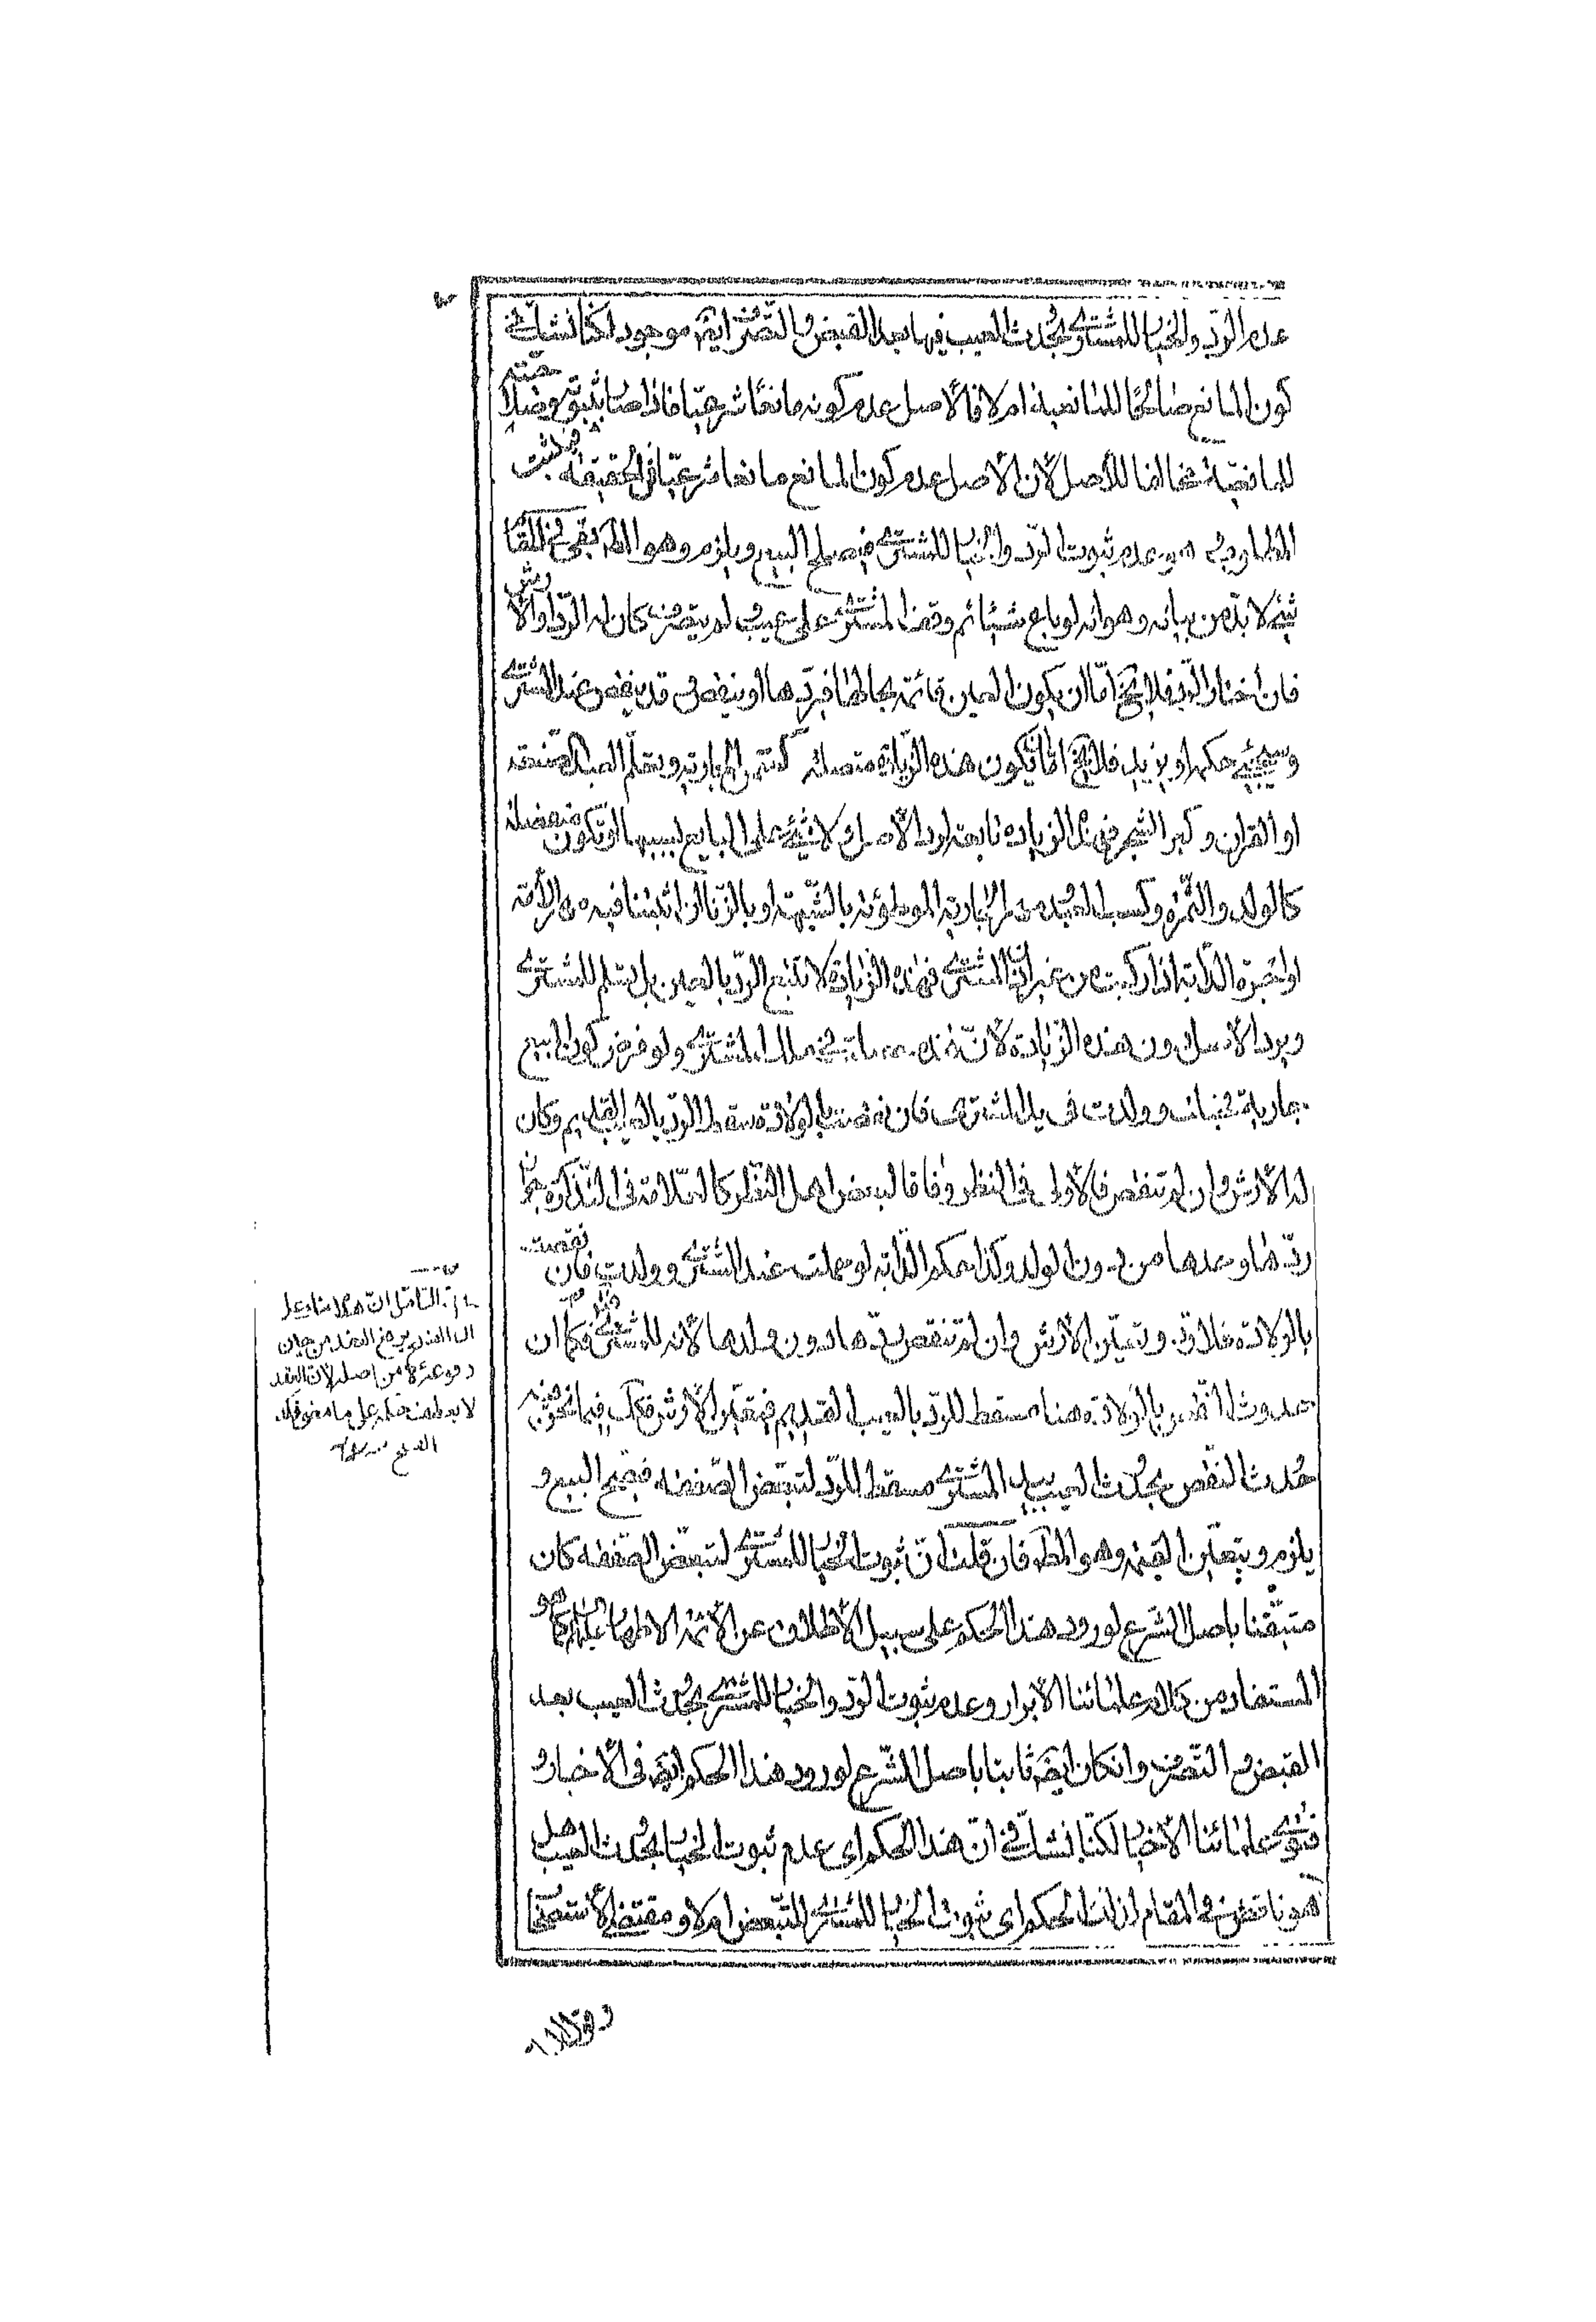 عدم الردّ والخيار للمشتري بحدث العيب فيها بعد القبض والتصرّف ايضا موجود لكنّا نشكّ في
كون المانع صالحًا للمانعية ام لا فالاصل عدم كونه مانعًا شرعيّا فاذا صار ثبوته وصلاحيّته
للمانعيّة مخالفا للاصل لانّ الاصل عدم كون المانع مانعا شرعيّا في الحقيقة فيثبت
المطلوب عدم ثبوت الردّ والخيار للمشتري فيصحّ البيع ويلزم وهو المط بقى في المقام
شئ لا بدّ من بيانه وهو انه لو باع شيئا ثم وقف المشتري على عيب لم يتصرّف كان له الردّ او الارش
فان اختار الردّ فلا يخ امّا ان يكون العين قائمة بحالها فيردّها او ينقص قد ينقص عند المشتري
وسيجئ حكمه او يزيد فلا يخ امّا ان يكون هذه الزيادة متصلة كسمن الجارية وتعلّم العبد الصنعة
او القران وكبر الشجر فهذه الزيادة تابعة لردّ الاصل ولا شئ على البايع بسببها او تكون منفصلة
كالولد والثمرة وكسب العبد ومهر الجارية الموطوئة بالشبهة او بالزنا ان اثبتنا فيه مهر الامة
او اجرة الدابّة اذا ركبت من غير اذن المشتري فهذه الزيادة لا تتبع الردّ بالعين بل تسلم للمشتري
ويرد الاصل دون هذه الزيادة لانّ هذه في ملك المشتري ولو فرض كون المبيع
جارية فحبلت وولدت في يد المشتري فان نقصت بالولادة سقط الردّ بالعيب القديم وكان
له الارش وان لم تنقص فالاولى في النظر وفاقا لبعض اهل النظر كالعلامة في التذكرة جواز
ردّها وحدها من دون الولد وكذا حكم الدابّة لو حملت عند المشتري وولدت فان نقصت
بالولادة فلا ردّ وتعيّن الارش وان لم تنقص ردّها دون ولدها لانه للمشتري فكما ان
حدوث النقص بالولادة هنا مسقط للردّ بالعيب القديم فيتعيّن الارش فكك فيما نحن فيه
حدث النقص بحدث العيب بيد المشتري مسقط للردّ لتبعّض الصفقة فيصح البيع و
يلزم ويتعيّن القيمة وهو المط فان قلت انّ ثبوت الخيار للمشتري لتبعّض الصفقة كان
متيقّنا باصل الشرع لورود هذا الحكم على سبيل الاطلاق عن الائمة الاطهار عليهم السلام كما هو
المستفاد من كلام علمائنا الابرار وعدم ثبوت الردّ والخيار للمشتري بحدث العيب بعد
القبض والتصرّف وان كان ايضا ثابتا باصل الشرع لورود هذا الحكم ايضا في الاخبار و
فتوى علمائنا الاخيار لكنّا نشكّ في انّ هذا الحكم اى عدم ثبوت الخيار بحدث العيب هل
هو ناقض في المقام لذلك الحكم اى ثبوت الخيار للمشتري للتبعّض ام لا ومقتضى الاستصحاب
التامّل انّ هذا بناء على
انّ الفسخ يرفع العقد من حين
وقوعه لا من اصله لانّ العقد
لا ينعطف حكمه على ما مضى فكذلك
الفسخ